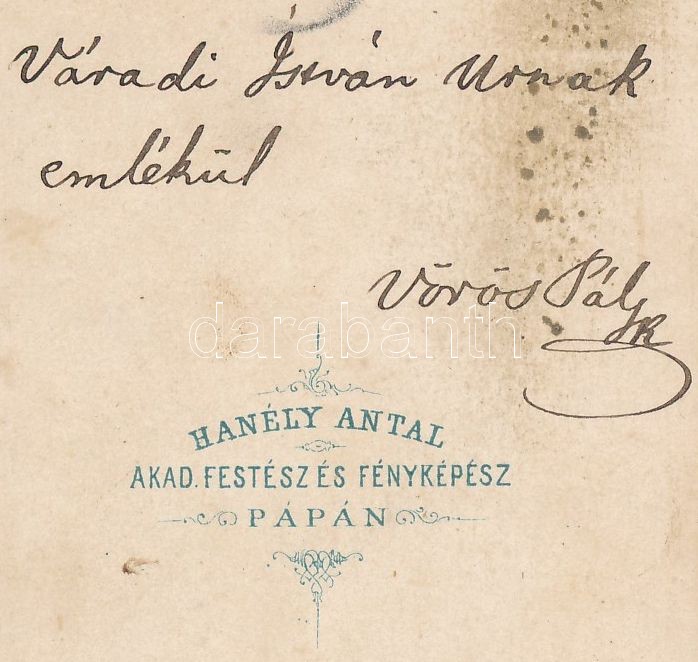 Váradi István Urnak
emlékül
Vörös Pál
darabanth
HANÉLY ANTAL
AKAD. FESTÉSZ ÉS FÉNYKÉPÉSZ
PÁPÁN